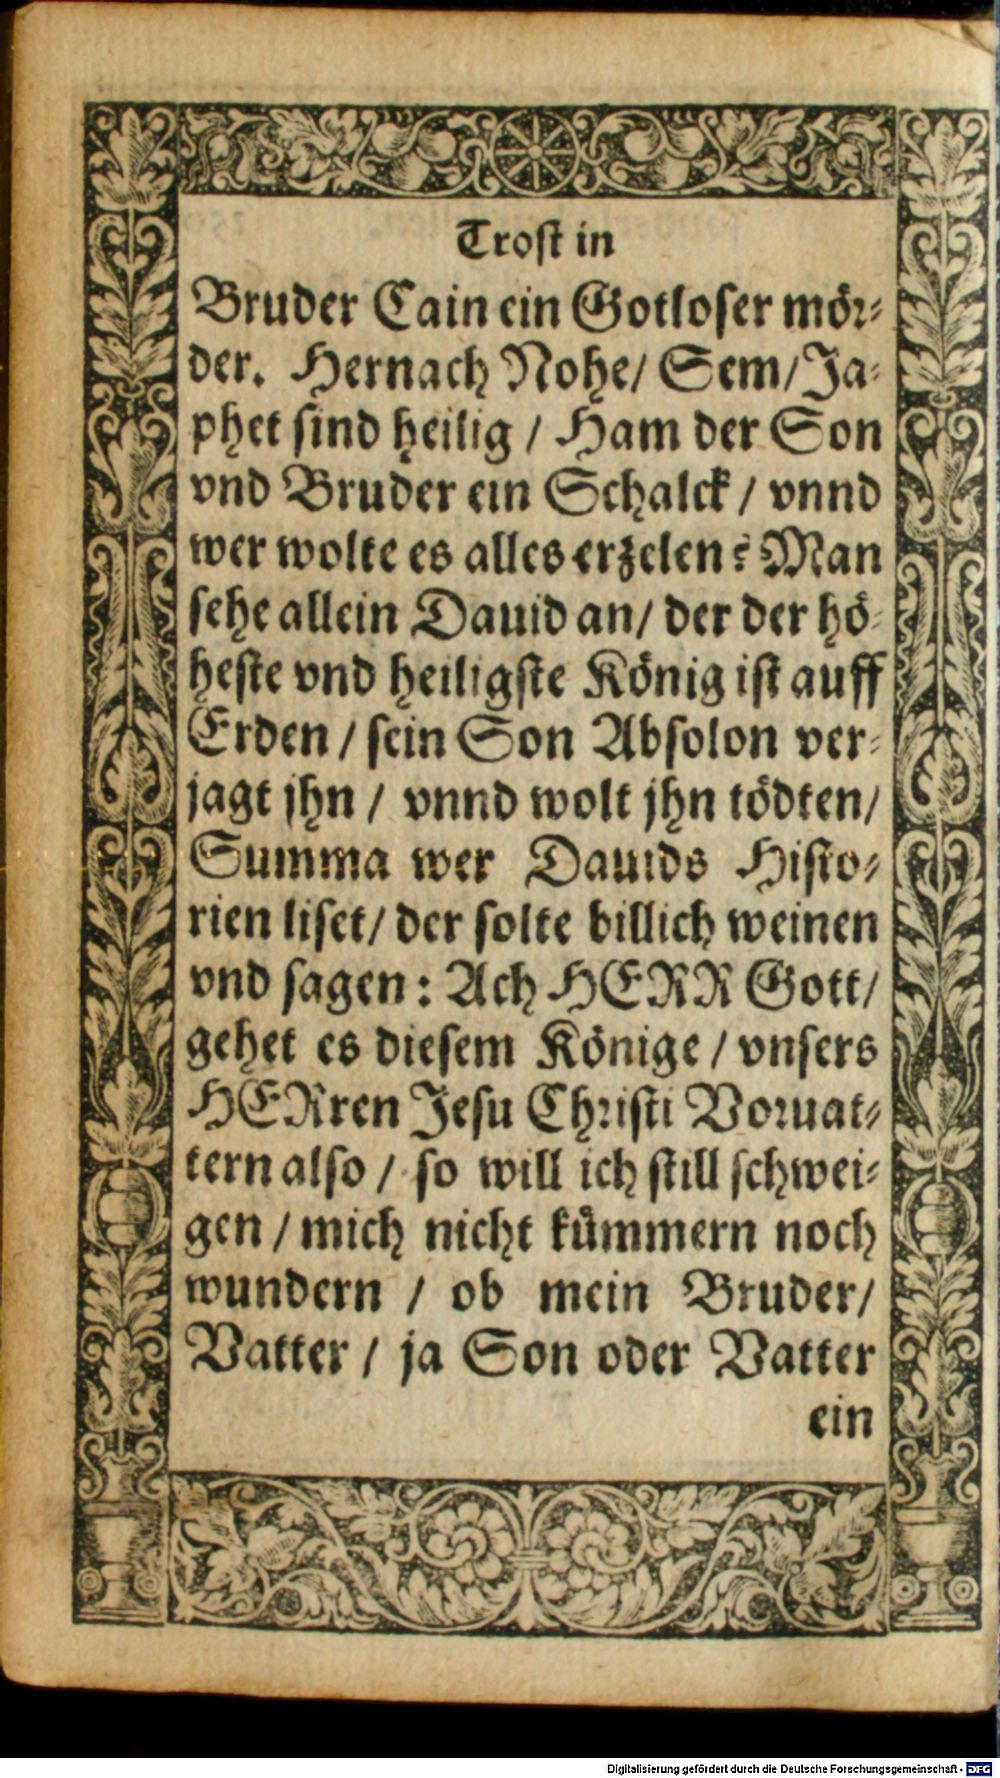 Trost in
Bruder Cain ein Gotloser mör⸗
der. Hernach Nohe/ Sem/Ja⸗
phet sind heilig / Ham der Son
vnd Bruder ein Schalck / vnnd
wer wolte es alles erzelen? Man
sehe allein Dauid an/ der der hö⸗
heste vnd heiligste König ist auff
Erden / sein Son Absolon ver⸗
jagt jhn / vnnd wolt jhn tödten/
Summa wer Dauids Histo⸗
rien liset/ der solte billich weinen
vnd sagen: Ach HERR Gott/
gehet es diesem Könige / vnsers
HERren Jesu Christi Voruat⸗
tern also / so will ich still schwei⸗
gen / mich nicht kümmern noch
wundern / ob mein Bruder/
Vatter / ja Son oder Vatter
ein
Digitalisierung gefördert durch die Deutsche Forschungsgemeinschaft - DFG